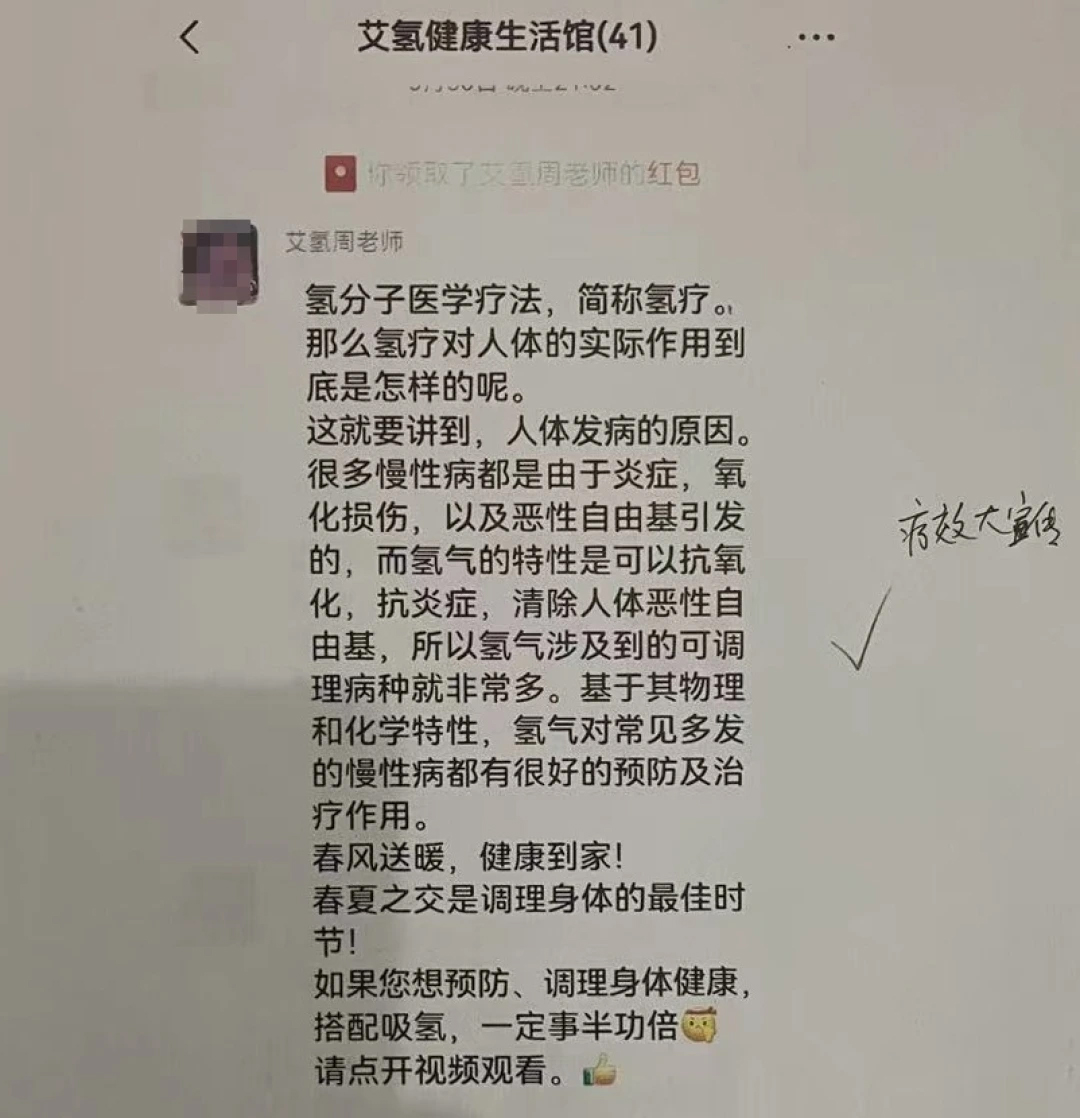 艾氢健康生活馆(41)
你领取了艾氢周老师的红包
艾氢周老师
氢分子医学疗法，简称氢疗。，
那么氢疗对人体的实际作用到
底是怎样的呢。
这就要讲到，人体发病的原因。
很多慢性病都是由于炎症，氧
化损伤，以及恶性自由基引发
的，而氢气的特性是可以抗氧
化，抗炎症，清除人体恶性自
由基，所以氢气涉及到的可调
理病种就非常多。基于其物理
和化学特性，氢气对常见多发
的慢性病都有很好的预防及治
疗作用。
春风送暖，健康到家！
春夏之交是调理身体的最佳时
节！
如果您想预防、调理身体健康，
搭配吸氢，一定事半功倍
请点开视频观看。
疗效大宣传